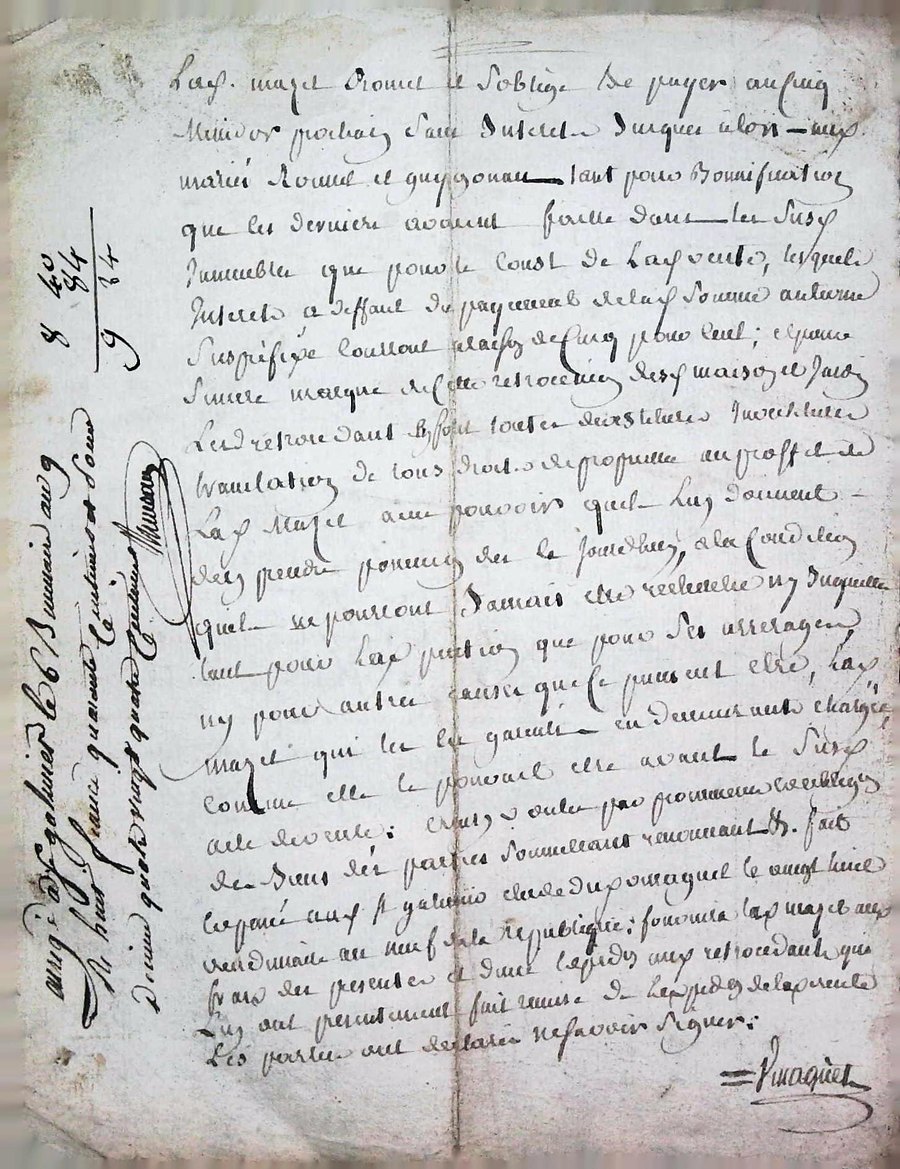 Lad. mazet Promet et Soblige de payer au Cinq
Messidor prochain Sans Interets Jusques alors — aux
mariés Romet et guyonnau — tant pour Bonnification
que les derniers avaient faitte dans les Susd.
Immeubles que pour le Coust de Lad. vente, lesquels
Interets a deffaut de payement de lad. Somme au terme
Suspécifié Courront a raison de Cinq pour Cent; et pour
Sincere marque de Cette retrocession desd. maison et Jardin
Lesd. retrocedants Se Sont toutes devestitures Investitures
translation de tous droits de propriette au proffit de
Lad. Mazet avec pouvoir quils Luy donnent —
den prendre possession des le Jourdhuy, a la Condition
quils ne pourront Jamais etre recherchés ny Inquiettés
tant pour Lad. portion que pour Ses arrerages
ny pour autres Causes que Ce puissent etre, Lad.
mazet qui les en garentit en demeurante chargée
Comme elle le pouvoit etre avant le Susd.
acte de vente;
de Biens des parties Soumettant renonçant &. fait
et passé aud. St galmier etude dud. vmaguet le vingt huit
vendemiaire an neuf de la republique; fournira lad. mazet aux
frais des presentes et dune Expedon aux retrocedants qui
Luy ont presentement fait remise de Lexpedon de la vente
Les parties ont declaré ne Savoir Signer:
= Vmaguet
enrg. a St galmier le 6 Brumaire an 9
R. huit francs quarante Centimes et Pour
Decime quatre vingt quatre Centimes
8 40
84
9 24